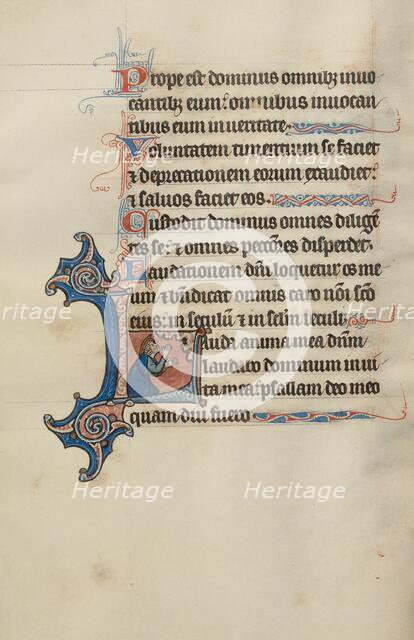 Prope est dominus omnibz inuo
cantibz eum: omnibus inuocan
tibus eum in ueritate.
Voluntatem timentium se faciet
& deprecationem eorum exaudiet:
& saluos faciet eos.
Custodit dominus omnes diligen
tes se: & omnes peccōres disperdet.
Laudationem dñi loquetur os me
um & bñdicat omnis caro nōi scō
eius: in seculū & in sclm seculi.
Lauda anima mea dñm
laudabo dominum in ui
ta mea: psallam deo meo
quam diu fuero
Heritage
Heritage
Heritage
Heritage
Heritage
Heritage